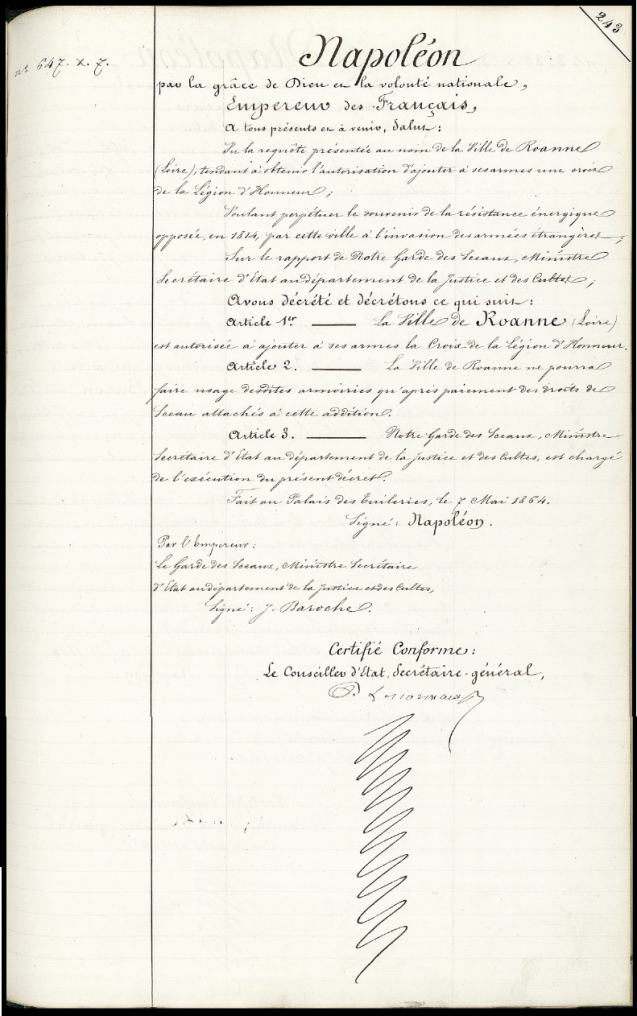 243
n° 647. x. 7.
Napoléon
par la grâce de Dieu et la volonté nationale,
Empereur des Français,
A tous présents et à venir, Salut:
Vu la requête présentée au nom de la Ville de Roanne
(Loire), tendant à obtenir l'autorisation d'ajouter à ses armes une croix
de la Légion d'Honneur;
Voulant perpétuer le souvenir de la résistance énergique
opposée, en 1814, par cette ville à l'invasion des armées étrangères;
Sur le rapport de Notre Garde des Sceaux, Ministre
Secrétaire d'Etat au département de la Justice et des Cultes;
Avons décrété et décrétons ce qui suit:
Article 1er — La Ville de Roanne (Loire)
est autorisée à ajouter à ses armes la Croix de la Légion d'Honneur.
Article 2. — La Ville de Roanne ne pourra
faire usage desdites armoiries qu'après paiement des droits de
Sceau attachés à cette addition.
Article 3. — Notre Garde des Sceaux, Ministre
Secrétaire d'Etat au département de la Justice et des Cultes, est chargé
de l'exécution du présent décret.
Fait au Palais des Tuileries, le 7 Mai 1864.
Signé: Napoléon.
Par l'Empereur:
Le Garde des Sceaux, Ministre Secrétaire
d'Etat au département de la Justice et des Cultes,
Signé: J. Baroche.
Certifié Conforme:
Le Conseiller d'Etat, Secrétaire-général,